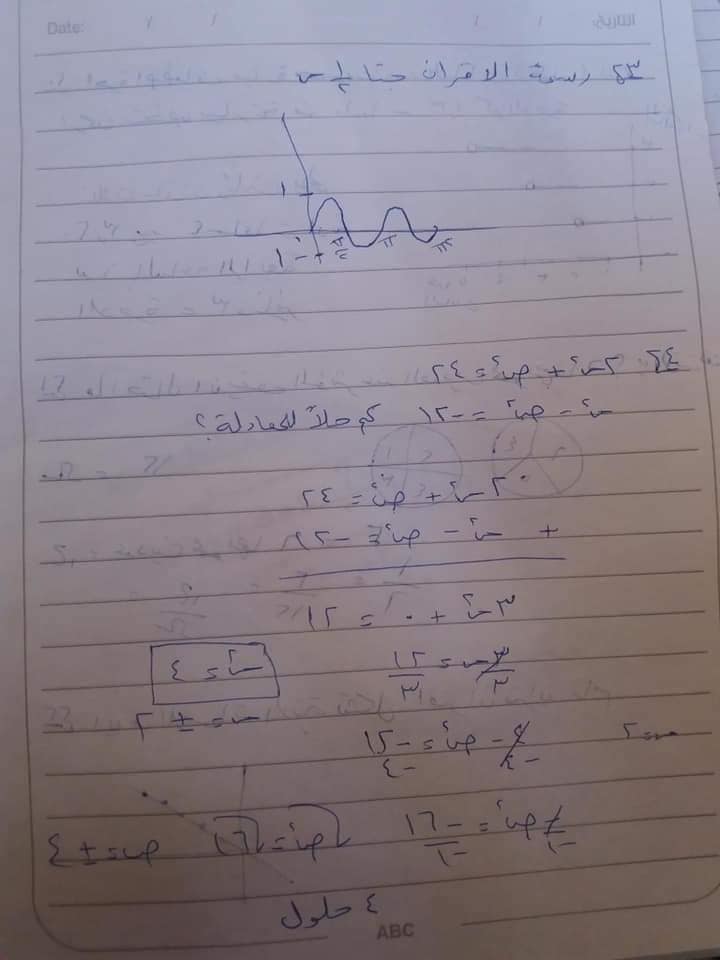 Date: / / / / التاريخ:
٢٣ رسمة الاقتران جتا ١/٢ س
١
٠ π/٢ π ٢π
-١
٢٤ ٢س² + ص² = ٢٤
س² - ص² = -١٢ كم حلاً للمعادلة؟
٢س² + ص² = ٢٤
+ س² - ص² = -١٢
٣س² + ٠ = ١٢
٣س² / ٣ = ١٢ / ٣ س² = ٤
س = ± ٢
س = ٢ ٤ - ص² = -١٢
-٤ -٤
-ص² / -١ = -١٦ / -١ √ص² = √١٦ ص = ± ٤
٤ حلول
ABC